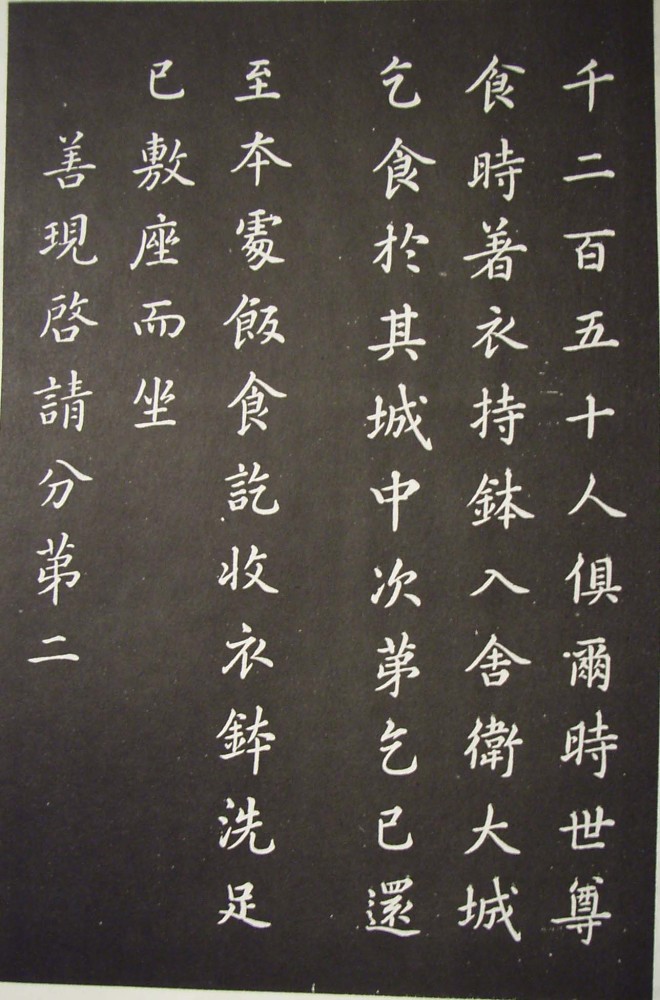 千二百五十人俱爾時世尊
食時著衣持鉢入舍衛大城
乞食於其城中次第乞已還
至本處飯食訖收衣鉢洗足
已敷座而坐
善現啓請分第二